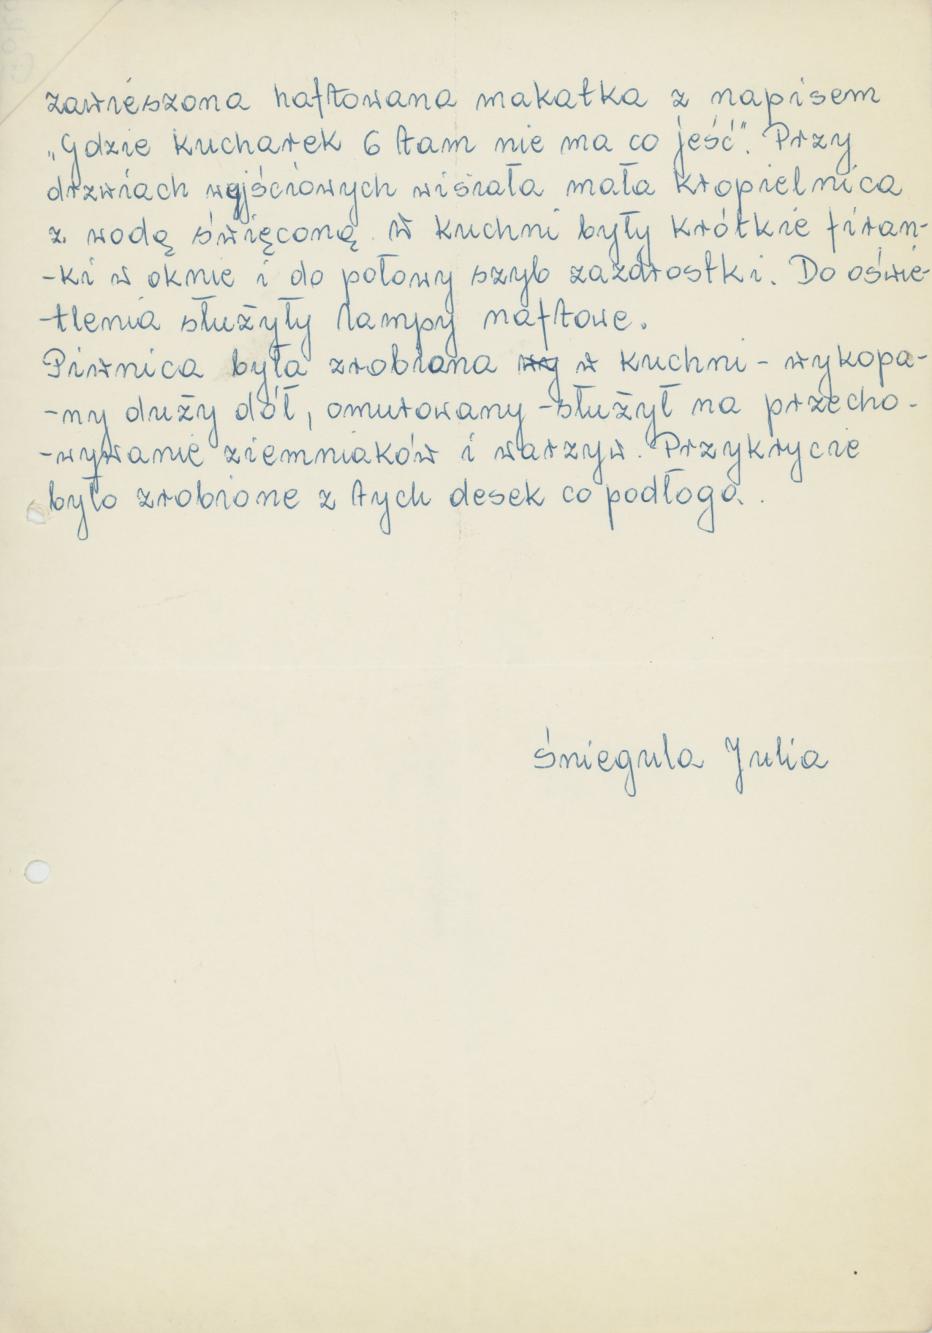 zawieszona haftowana makatka z napisem
„Gdzie kucharek 6 tam nie ma co jeść”. Przy
drzwiach wyjściowych wisiała mała kropielnica
z wodą święconą. W kuchni były krótkie firan-
-ki w oknie i do połowy szyb zazdrostki. Do oświe-
-tlenia służyły lampy naftowe.
Piwnica była zrobiona w kuchni - wykopa-
-ny duży dół, omurowany - służył na przecho-
-wywanie ziemniaków i warzyw. Przykrycie
było zrobione z tych desek co podłoga.
Śniegula Julia